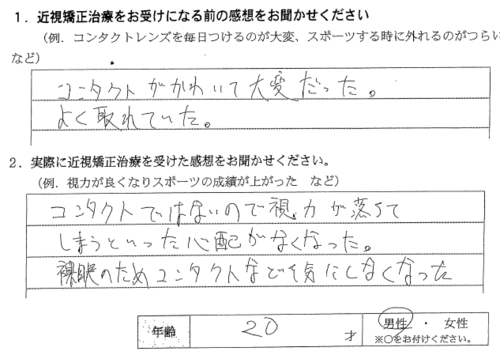 1．近視矯正治療をお受けになる前の感想をお聞かせください
（例．コンタクトレンズを毎日つけるのが大変、スポーツする時に外れるのがつらい
など）
コンタクトがかわいて大変だった。
よく取れていた。
2．実際に近視矯正治療を受けた感想をお聞かせください。
（例．視力が良くなりスポーツの成績が上がった　など）
コンタクトではないので視力が落ちて
しまうといった心配がなくなった。
裸眼のためコンタクトなどを気にしなくなった
年齢 20 才 男性 ・ 女性
※〇をお付けください。